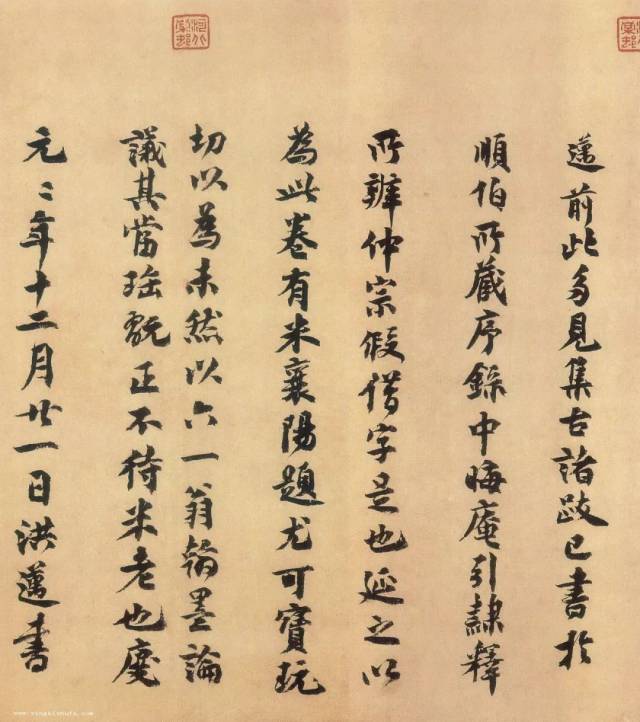 邁前此多見集古諸跋已書於
順伯所藏序錄中晦庵引隸釋
所辨仲宗假借字是也延之以
為此卷有米襄陽題尤可寶玩
切以為未然以六一翁翰墨論
議其當珤翫正不待米老也慶
元二年十二月廿一日洪邁書
www.yingbishufa.com